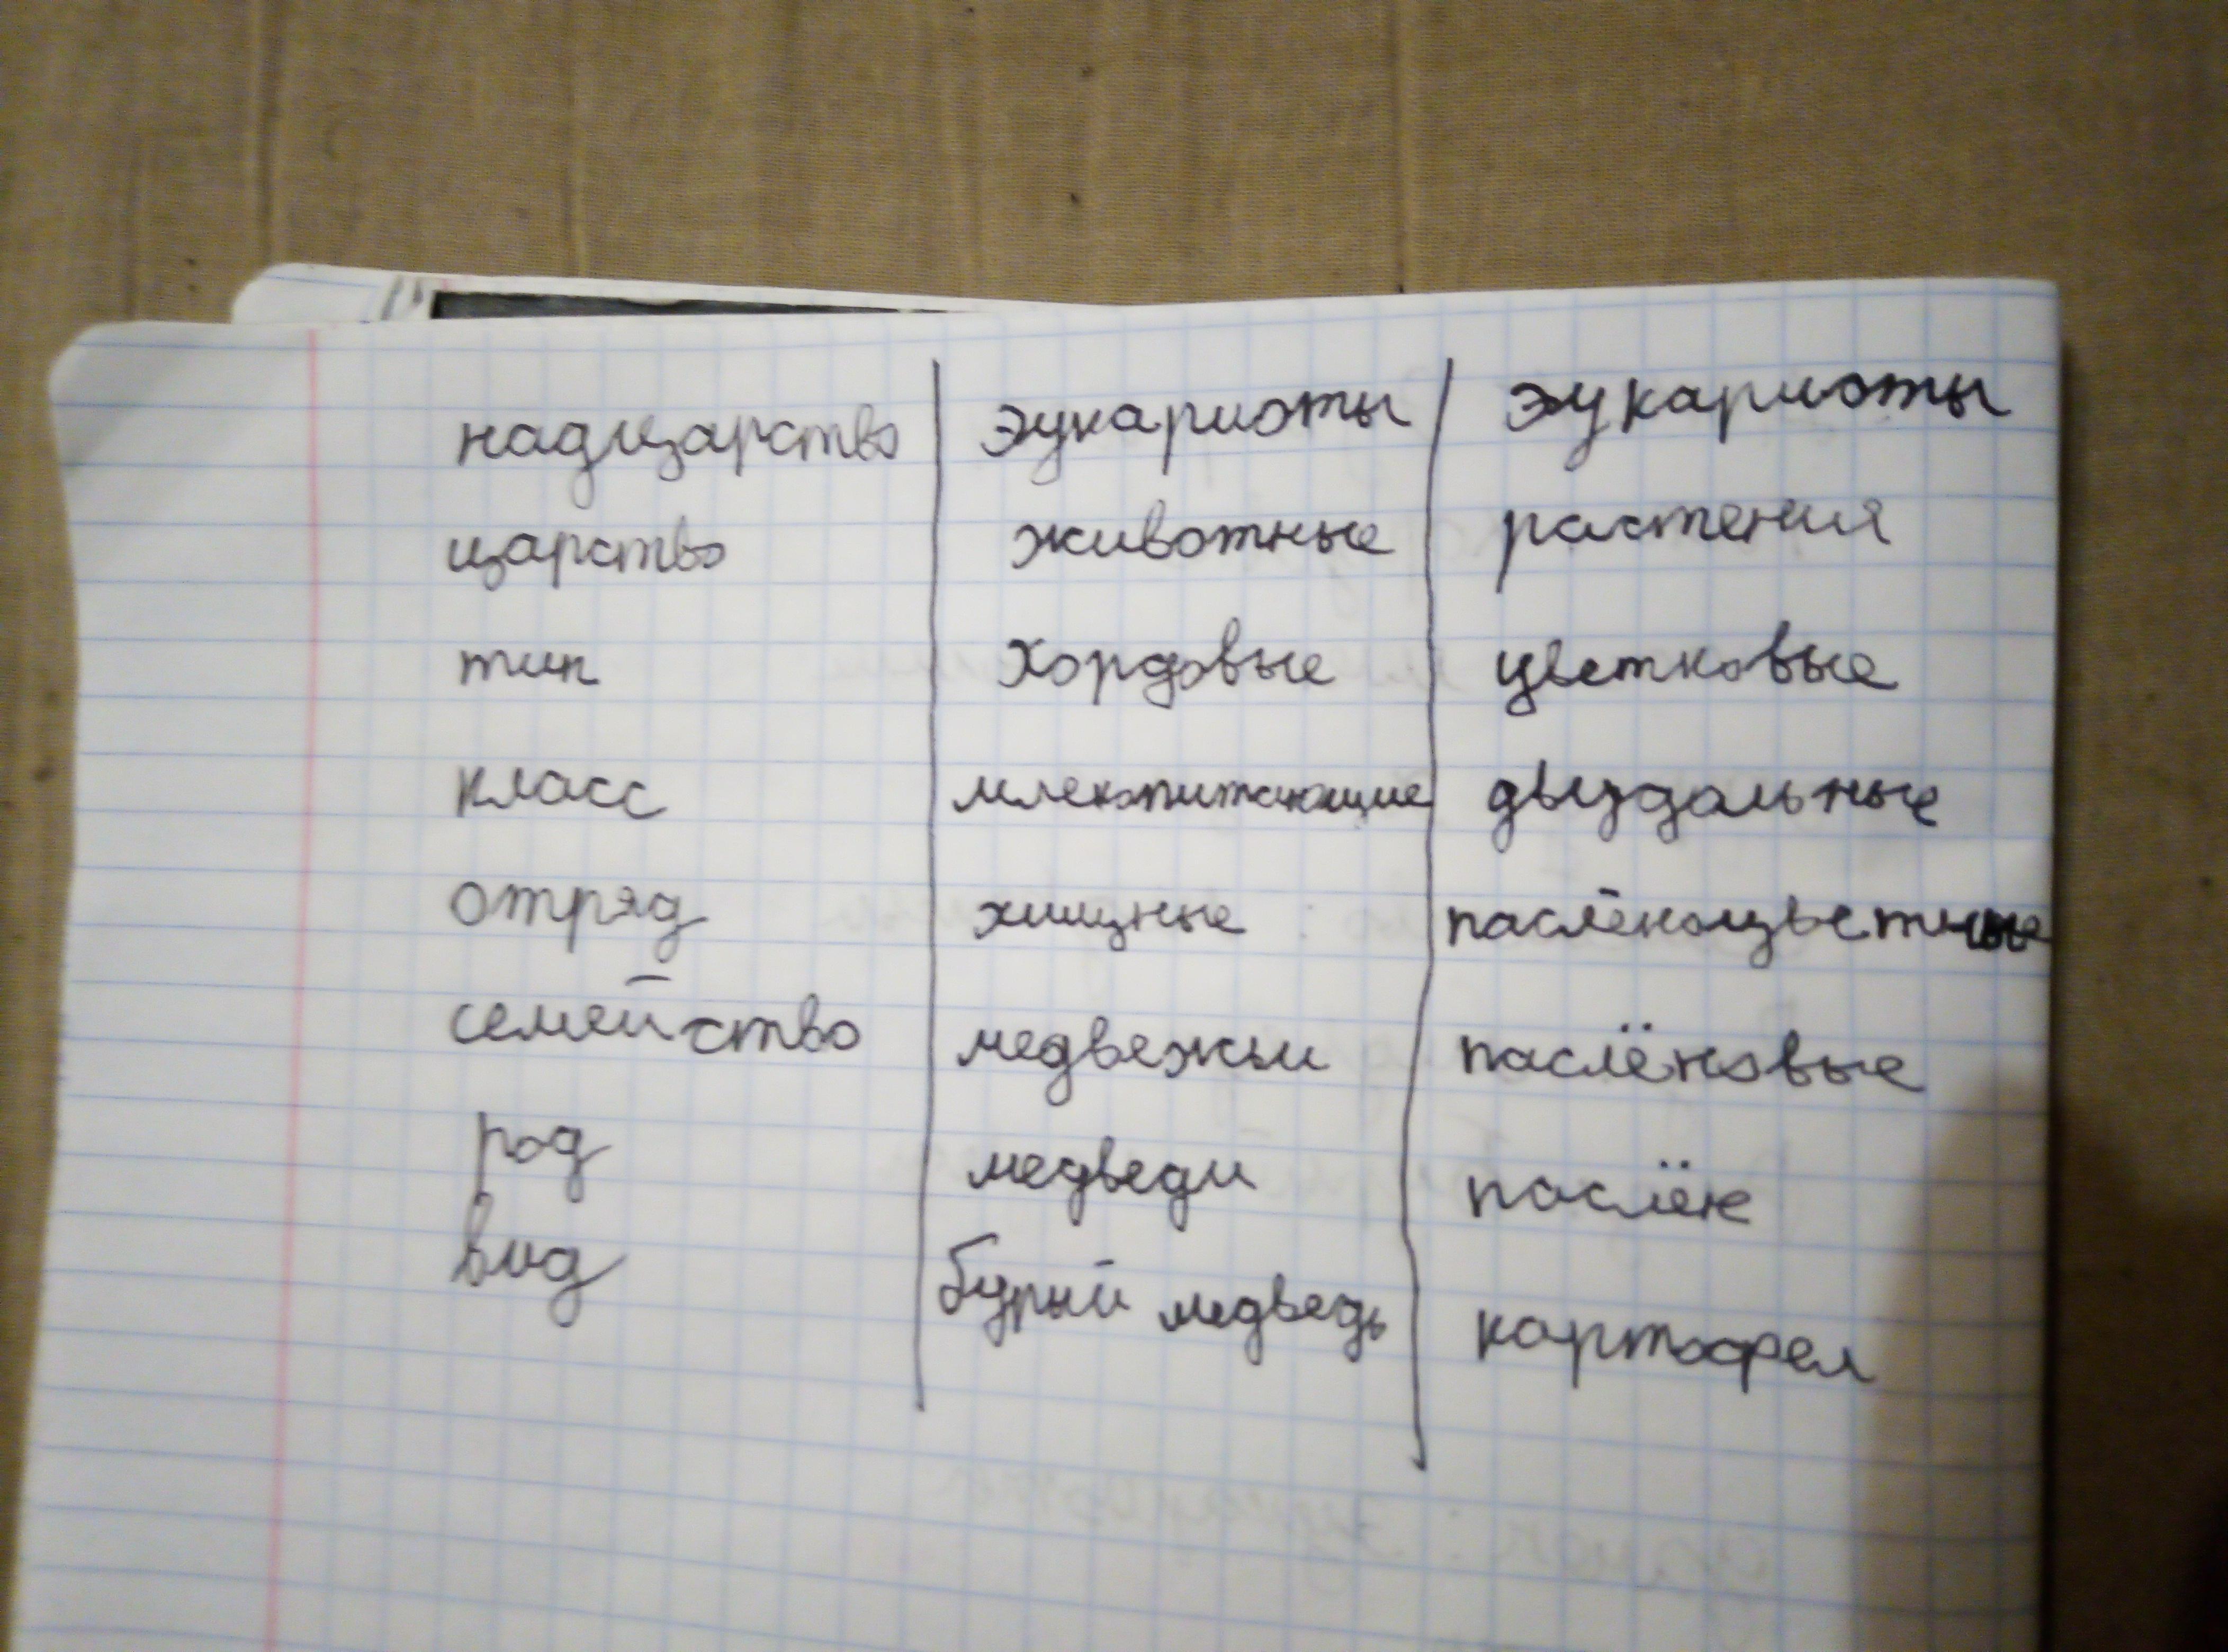 надцарство эукариоты эукариоты
царство животные растения
тип Хордовые цветковые
класс млекопитающие двудольные
отряд хищные паслёноцветные
семейство медвежьи паслёновые
род медведи паслён
вид бурый медведь картофел